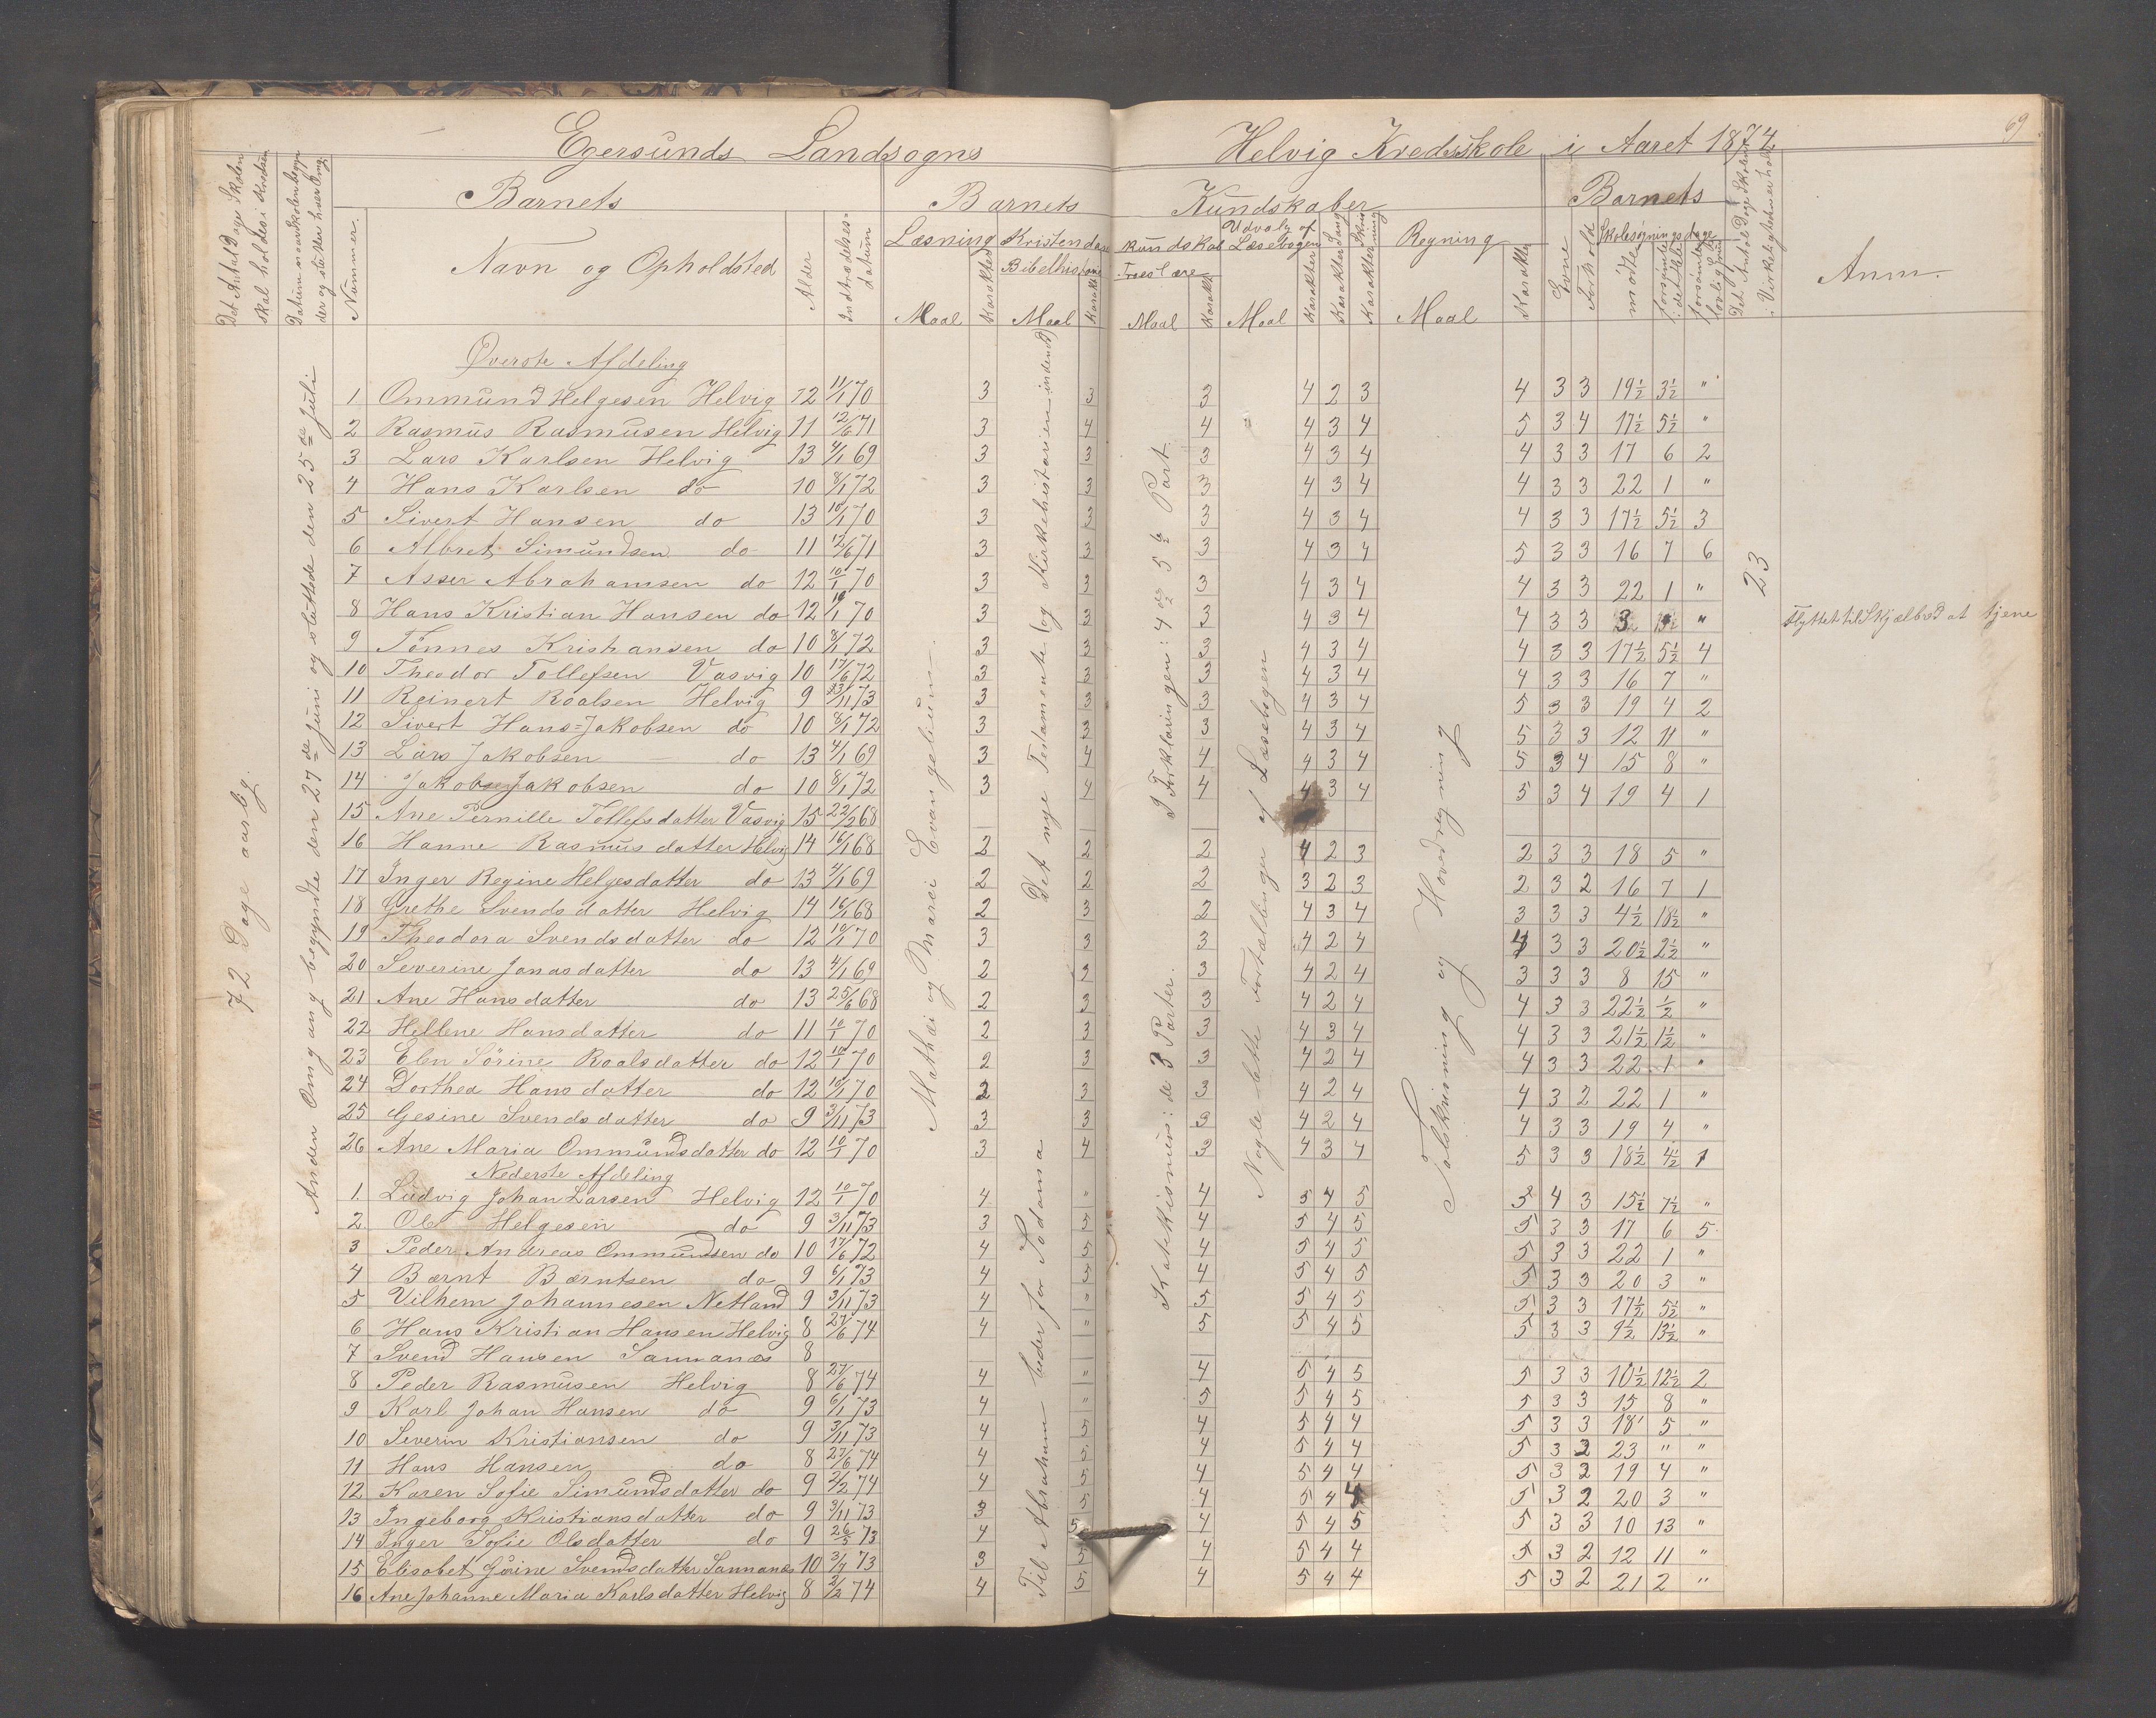 69
Egersunds Landsogns Helvig Kredsskole i Aaret 1874
Det Antal Dage Skolen skal holdes i Kredsen
Datum naar Skolen begynder og slutter hver Omg.
Barnets
Nummer.
Navn og Opholdsted
Alder
Indtrædelses-datum
Barnets Kundskaber
Læsning
Maal
Karakter
Kristendomskundskab
Bibelhistorie
Maal
Karakter
Troeslære
Maal
Karakter
Udvalg af Læsebogen
Maal
Karakter
Karakter Sang
Karakter Skrivning
Regning
Maal
Karakter
Barnets
Evne
Forhold
Skolesøgningsdage
mødte
forsømte i det Hele
forsømte af lovlig Grund
Det Antal Dage Skolen i Virkeligheden er holdt
Anm.
72 Dage aarlig.
Anden Omgang begyndte den 27de Juni og sluttede den 25de Juli
Øverste Afdeling
1 Ommund Helgesen Helvig 12 11/1 70 3 3 3 4 2 3 4 3 3 19½ 3½ "
2 Rasmus Rasmusen Helvig 11 12/6 71 3 4 4 4 3 4 5 3 4 17½ 5½ "
3 Lars Karlsen Helvig 13 4/1 69 3 3 3 4 3 4 4 3 3 17 6 2
4 Hans Karlsen do 10 8/1 72 3 3 3 4 3 4 4 3 3 22 1 "
5 Sivert Hansen do 13 10/1 70 3 3 3 4 3 4 4 3 3 17½ 5½ 3
6 Albret Simundsen do 11 12/6 71 3 3 3 4 3 4 5 3 3 16 7 6
7 Asser Abrahamsen do 12 10/1 70 3 3 3 4 3 4 4 3 3 22 1 "
8 Hans Kristian Hansen do 12 10/1 70 3 3 3 4 3 4 4 3 3 "  Flyttet til Skjælbred at tjene
9 Tønnes Kristiansen do 10 8/1 72 3 3 3 4 3 4 4 3 3 17½ 5½ 4
10 Theodor Tollefsen Vasvig 10 17/6 72 3 3 3 4 3 4 4 3 3 16 7 "
11 Reinert Roalsen Helvig 9 3/11 73 3 3 3 4 3 4 5 3 3 19 4 2
12 Sivert Hans=Jakobsen do 10 8/1 72 3 3 3 4 3 4 5 3 3 12 11 "
13 Lars Jakobsen do 13 4/1 69 3 4 4 4 3 4 5 3 4 15 8 "
14 Jakob Jakobsen do 10 8/1 72 3 4 4 4 3 4 5 3 4 19 4 1
15 Ane Pernille Tollefsdatter Vasvig 15 22/2 68
16 Hanne Rasmusdatter Helvig 14 16/1 68 2 2 2 4 2 3 2 3 3 18 5 "
17 Inger Regine Helgesdatter do 13 4/1 69 2 2 2 3 2 3 2 3 2 16 7 1
18 Grethe Svendsdatter Helvig 14 16/1 68 2 3 2 4 3 4 3 3 3 4½ 18½ "
19 Theodora Svendsdatter do 12 10/1 70 3 3 3 4 2 4 4 3 3 20½ 2½ "
20 Severine Jonasdatter do 13 4/1 69 2 2 3 4 2 4 3 3 3 8 15 "
21 Ane Hansdatter do 13 25/6 68 2 3 3 4 2 4 4 3 3 22½ ½ "
22 Hellene Hansdatter do 11 10/1 70 2 3 3 4 3 4 4 3 3 21½ 1½ "
23 Elen Sørine Roalsdatter do 12 10/1 70 2 3 3 4 2 4 4 3 3 22 1 "
24 Dorthea Hansdatter do 12 10/1 70 2 3 3 4 2 4 4 3 2 22 1 "
25 Gesine Svendsdatter do 9 3/11 73 3 3 3 4 2 4 4 3 3 19 4 "
26 Ane Maria Ommundsdatter do 12 10/1 70 3 4 3 4 3 4 5 3 3 18½ 4½ 1
Nederste Afdeling
1. Ludvig Johan Larsen Helvig 12 10/1 70 4 " 4 5 4 5 5 4 3 15½ 7½ "
2. Ole Helgesen do 9 3/11 73 3 5 4 5 4 5 5 3 3 17 6 5
3 Peder Andreas Ommundsen do 10 17/6 72 4 5 4 5 4 5 5 3 3 22 1 "
4 Bærnt Bærntsen do 9 6/1 73 4 5 4 5 4 5 5 3 3 20 3 "
5 Vilhem Johannesen Netland 9 3/11 73 4 " 5 5 4 5 5 3 3 17½ 5½ "
6 Hans Kristian Hansen Helvig 8 27/6 74 4 " 5 5 4 5 5 3 3 9½ 13½ "
7 Svend Hansen Sannanæs 8
8 Peder Rasmusen Helvig 8 27/6 74 4 " 4 5 4 5 5 3 3 10½ 12½ 2
9 Karl Johan Hansen do 9 6/1 73 4 " 5 5 4 5 5 3 3 15 8 "
10 Severin Kristiansen do 9 3/11 73 4 5 4 5 4 4 5 3 3 18 5 "
11 Hans Hansen do 8 27/6 74 4 5 4 5 4 4 5 3 2 23 " "
12 Karen Sofie Simundsdatter do 9 2/2 74 4 5 4 5 4 4 5 3 2 19 4 "
13 Ingeborg Kristiansdatter do 9 3/11 73 3 5 4 5 4 4 5 3 2 20 3 "
14 Inger Sofie Olsdatter do 9 26/5 73 4 5 4 5 4 5 5 3 3 10 13 "
15 Elisabet Gurine Svendsdatter Sannanæs 10 3/4 73 3 5 4 5 4 4 5 3 2 12 11 "
16 Ane Johanne Maria Karlsdatter Helvig 8 2/2 74 4 5 4 5 4 4 5 3 2 21 2 "
Mathæi og Marci Evangelium.
Det nye Testamente (og Kirkehistorien indendt)
Til Abraham beder for Sodama
I Forklaringen: 4de 5 6 Part
Katekismus: de 3 Parter.
Nogle lette Fortællinger af Læsebogen
Talskrivning og Hovedregning
23